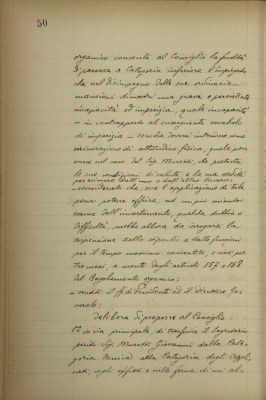 50
organico consente al Consiglio la facoltà
di passare a Categoria inferiore l'impiegato
che nel disimpegno delle sue ordinarie
mansioni dimostri una grave e persistente
incapacità od imperizia, quale incapacità
- in contrapposto al susseguente vocabolo
di imperizia - sembra doversi intendere come
menomazione di attitudine fisica, quale può
essere nel caso del Sig. Muratti che protesta
le sue condizioni di salute e la sua
per esimersi
- considerato che, ove l'applicazione di tale
pena potesse offrire, ad un più minuto
esame dell'incartamento, qualche dubbio o
difficoltà, sarebbe allora da erogarsi la
sospensione dallo stipendio e dalle funzioni
per il tempo massimo consentito, e cioè per
tre mesi, a mente degli articoli 157 e 158
del Regolamento organico;
- sentiti il ff di Presidente ed il Direttore Ge-
nerale;
delibera di proporre al Consiglio:
1º in via principale, di trasferire il Segretario
perito Sig. Muratti Giovanni dalla Cate-
goria tecnica alla Categoria degli Appli-
cati, agli effetti e nelle forme di cui al-